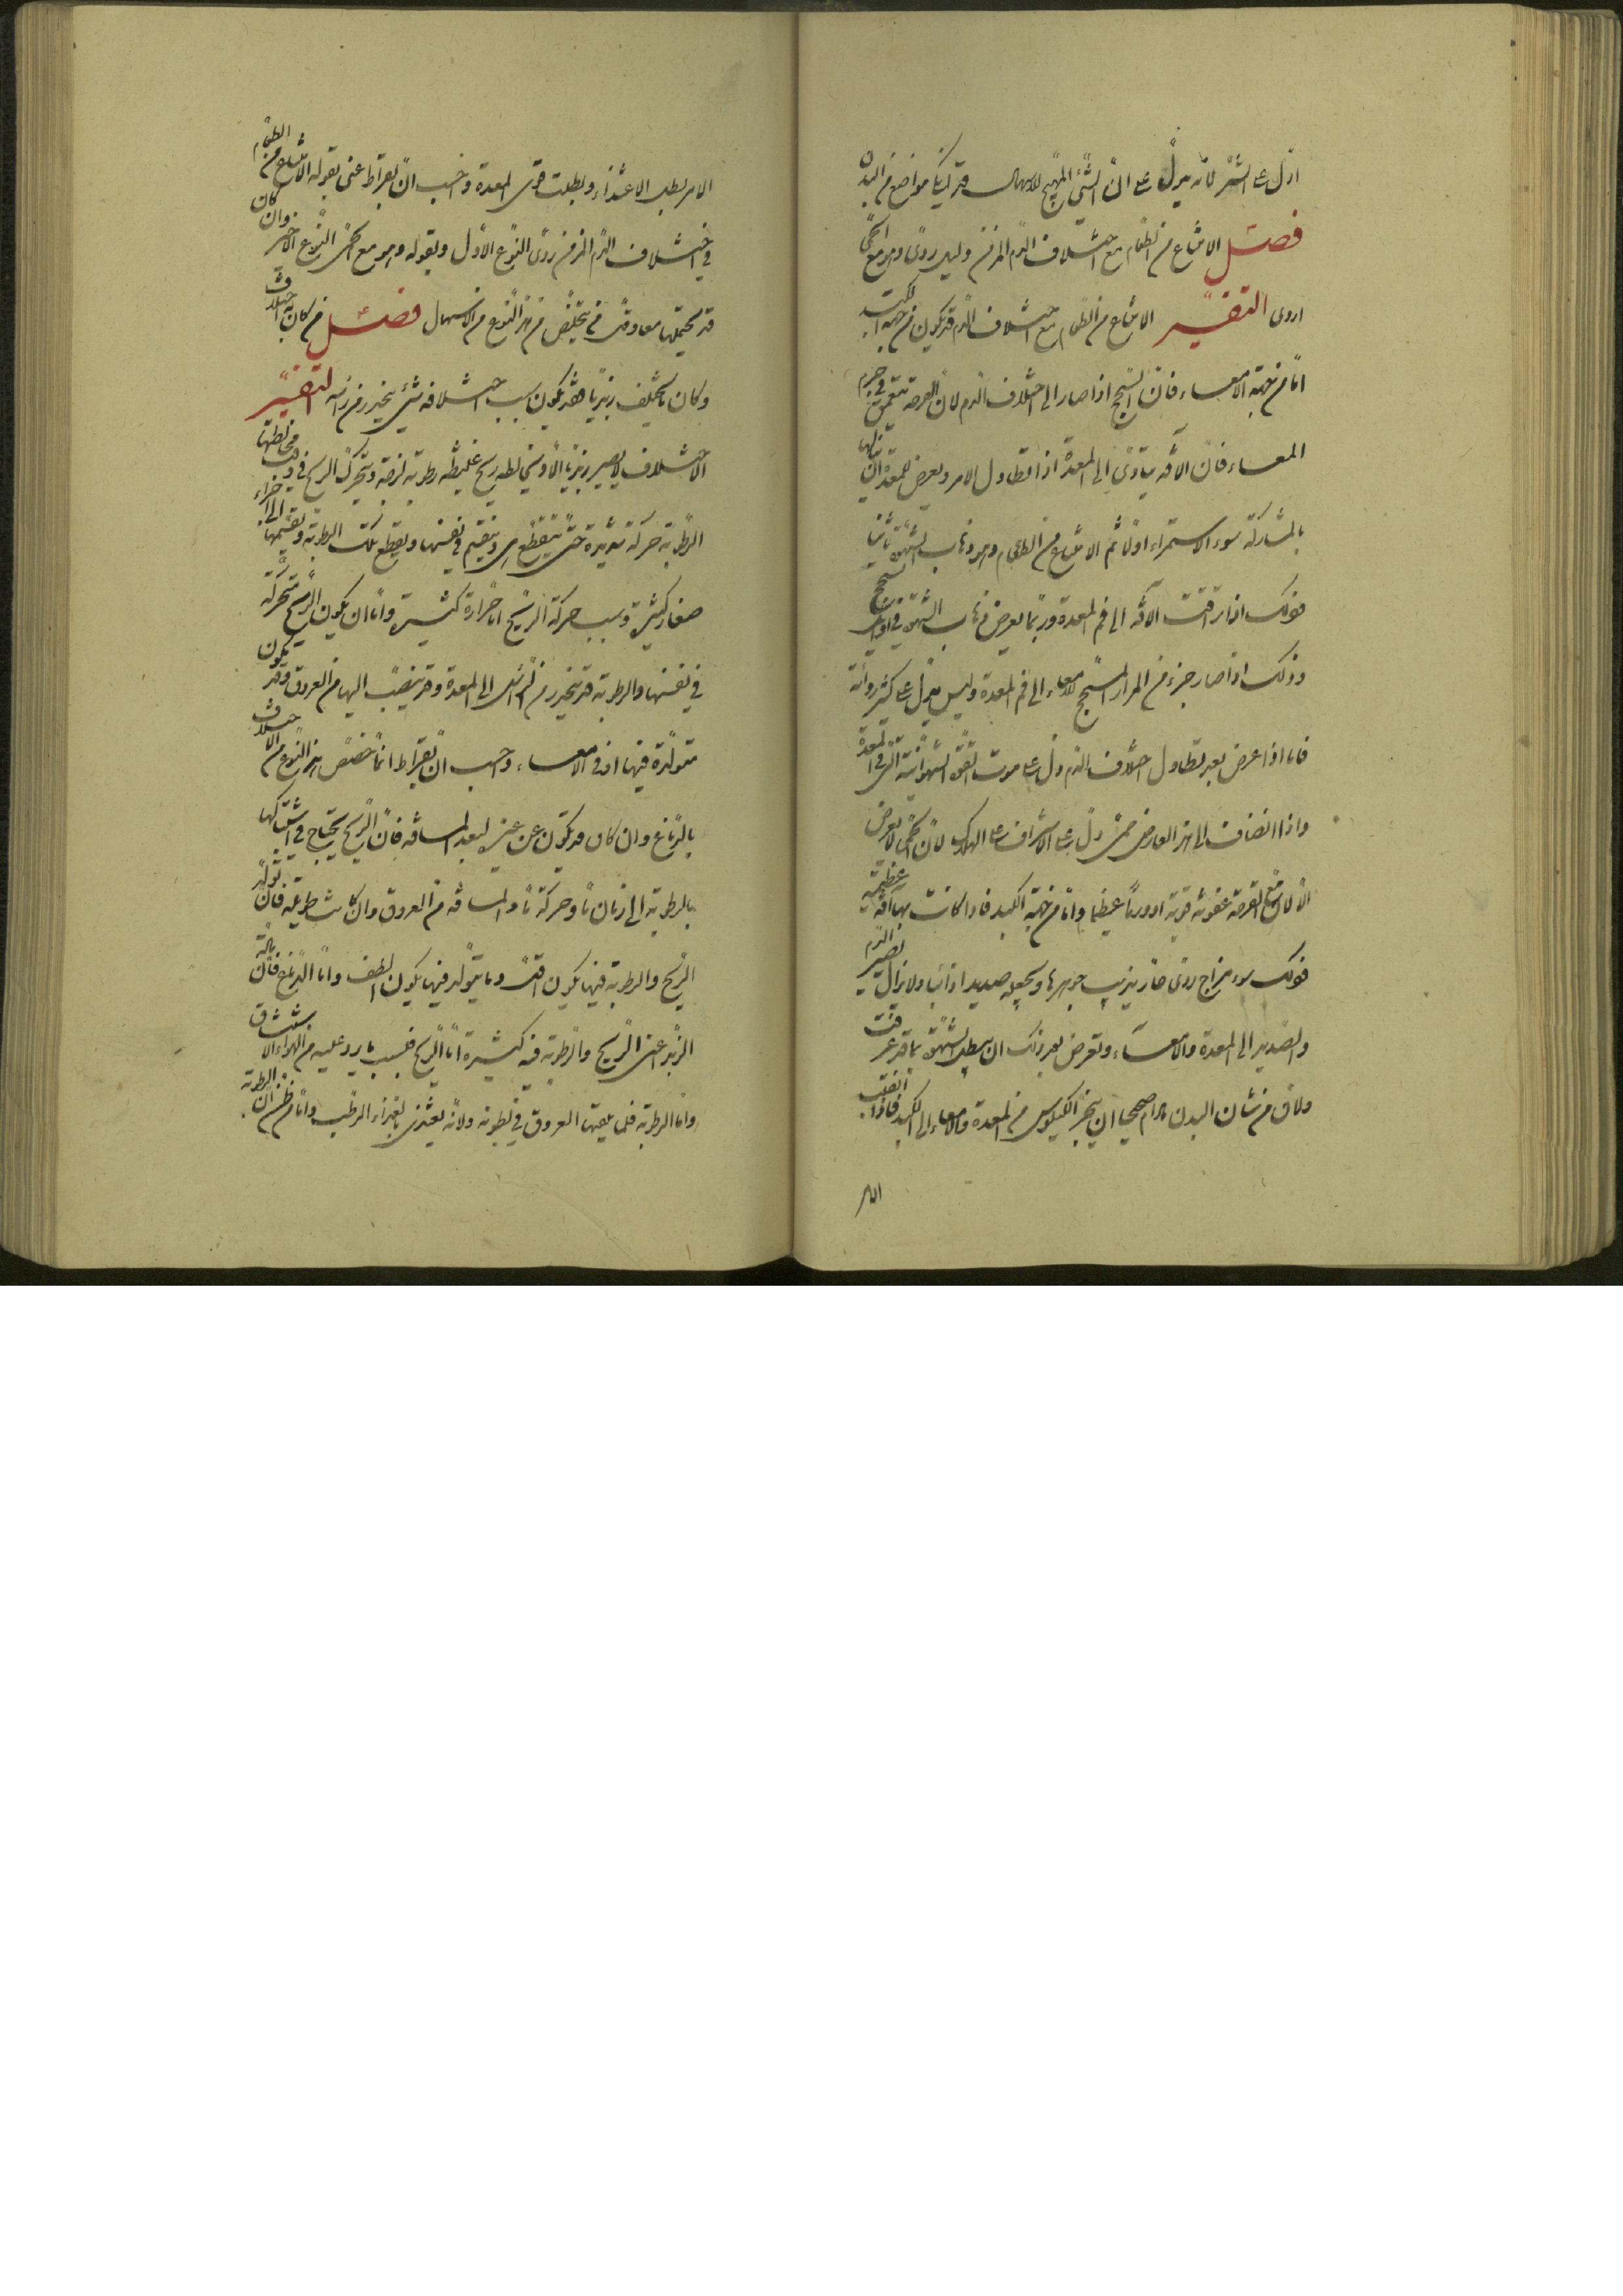 ادل على الشر لانه يدل على ان الشئ المهيج للاسهال قد لنكا مواضع من البدن
فصل الامتناع من الطعام مع اختلاف الدم المزمن دليل ردى وهو مع الحمى
اردى التفسير الامتناع من الطعام مع اختلاف الدم قد يكون من جهة الكبد
اما من جهة الامعاء فان السحج اذا صار الى اختلاف الدم لان القرحة تتعمق فى جرم
المعاء فان الآفة تتادى الى المعدة اذا تطاول الامر ويعرض للمعدة ان ينالها
بالمشاركة سوء الاستمراء اولا ثم الامتناع من الطعام وهو ذهاب الشهوة ثانيا
فذلك اذا ارتقت الآفة الى فم المعدة وربما يعرض ذهاب الشهوة فى اوائل السحج
وذلك اذا صار جزء من المرار المسحج للامعاء الى فم المعدة وليس يدل على كثير رداءة
فاما اذا عرض بعد تطاول اختلاف الدم دل على موت القوة الشهوانية التى فى المعدة
واذا انضاف الى هذا العارض حمى دل على الاشراف على الهلاك لان الحمى لا تعرض
الا لان مع القرحة عفونة قوية او ورما عظيما واما من جهة الكبد فاذا كانت بها آفة عظيمة
فذلك سوء مزاج ردى حار يذيب جوهرها ويجعله صديدا ذائبا ولا يزال يصير الدم
والصديد الى المعدة والامعاء ويعرض بعد ذلك ان يبطل الشهوة بما قد عرفت
ولان من شان البدن مادام صحيحا ان ينجر الكيلوس من المعدة والامعاء الى الكبد فاذا انقلب
الامر
الامر بطل الاغتذاء وبطلت قوى المعدة واحسب ان بقراط عنى بقوله الامتناع من الطعام
فى اختلاف الدم المزمن ردى النوع الاول وبقوله وهو مع الحمى النوع الاخر وان كان
قد يحتملها معا وقل من يتخلص من هذا النوع من الاسهال فصل من كان به اختلاف
وكان ما يختلف زبديا فقد يكون سبب اختلافه شئ ينحدر من راسه التفسير
الاختلاف لا يصير زبديا الا وينحى لطه ريح غليظة رطوبة لزجة وتتحرك الريح فى وقت مخالطتها
الرطوبة حركة شديدة حتى تتقطع هى وتنقسم فى نفسها وتقطع تلك الرطوبة وتقسمها الى اجزاء
صغار كثيرة وسبب حركة الريح اما حرارة كثيرة واما ان يكون الريح متحركة
فى نفسها والرطوبة قد تنحدر من الراس الى المعدة وقد تنصب اليها من العروق وقد يكون
متولدة فيها او فى الامعاء واحسب ان بقراط انما خصص هذا النوع من الاختلاف
بالدماغ وان كان قد يكون عن غيره لبعد المسافة فان الريح يحتاج فى اشتباكها
بالرطوبة الى زمان ما وحركة ما والمسافة من العروق وان كانت طويلة فان تولد
الريح والرطوبة فيها يكون اقل وما يتولد فيها يكون الطف واما الدماغ فان مادة
الزبد اعنى الريح والرطوبة فيه كثيرة اما الريح فبسبب ما يرد عليه من الهواء بالاستنشاق
واما الرطوبة فلما يلقيها العروق فى بطونه ولانه يغتذى بالغذاء الرطب واما من ظن ان الرطوبة